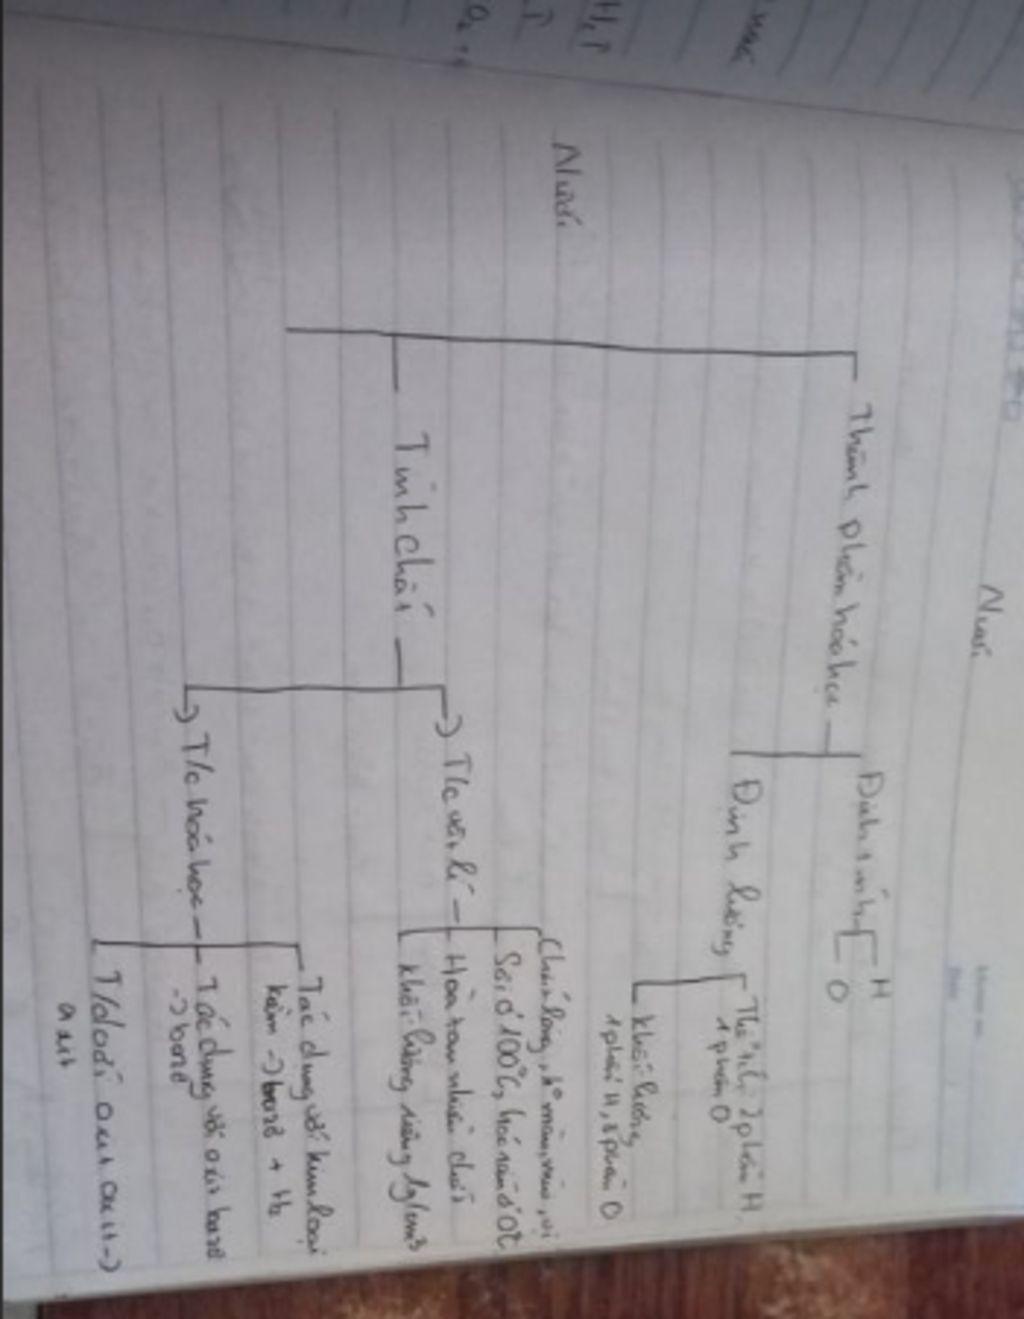 Nước
Nước
Thành phần hóa học
Định tính
H
O
Định lượng
Thể tích 2 phần H
1 phần O
Khối lượng
1 phần H, 8 phần O
Tính chất
T/c vật lí
Chất lỏng, ko màu, mùi, vị
Sôi ở 100°C, hóa rắn ở 0°C
Hòa tan nhiều chất
Khối lượng riêng 1g/cm3
T/c hóa học
Tác dụng với kim loại
kiềm -> bazơ + H2
Tác dụng với oxit bazơ
-> bazơ
T/d với oxit axit ->
axit
H2↑